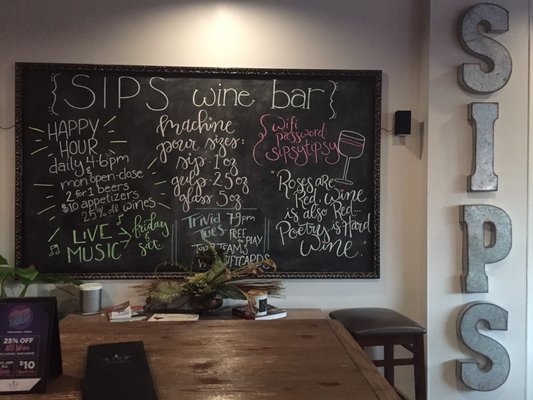 {SIPS wine bar}
HAPPY
HOUR
daily 4-6pm
mon open-close
2 for 1 beers
$10 appetizers
25% off wines
LIVE
MUSIC
friday
& sat.
Machine
pour sizes:
sip: 1oz
gulp: 2.5oz
glass: 5oz
Trivia 7-9pm
Tues FREE
TO PLAY
TOP 3 TEAMS
WIN GIFTCARDS
{Wifi
password:
sipsytipsy
"Roses are
Red. Wine
is also Red...
Poetry is Hard
Wine."
SIPS
25% OFF
All Wine
$10